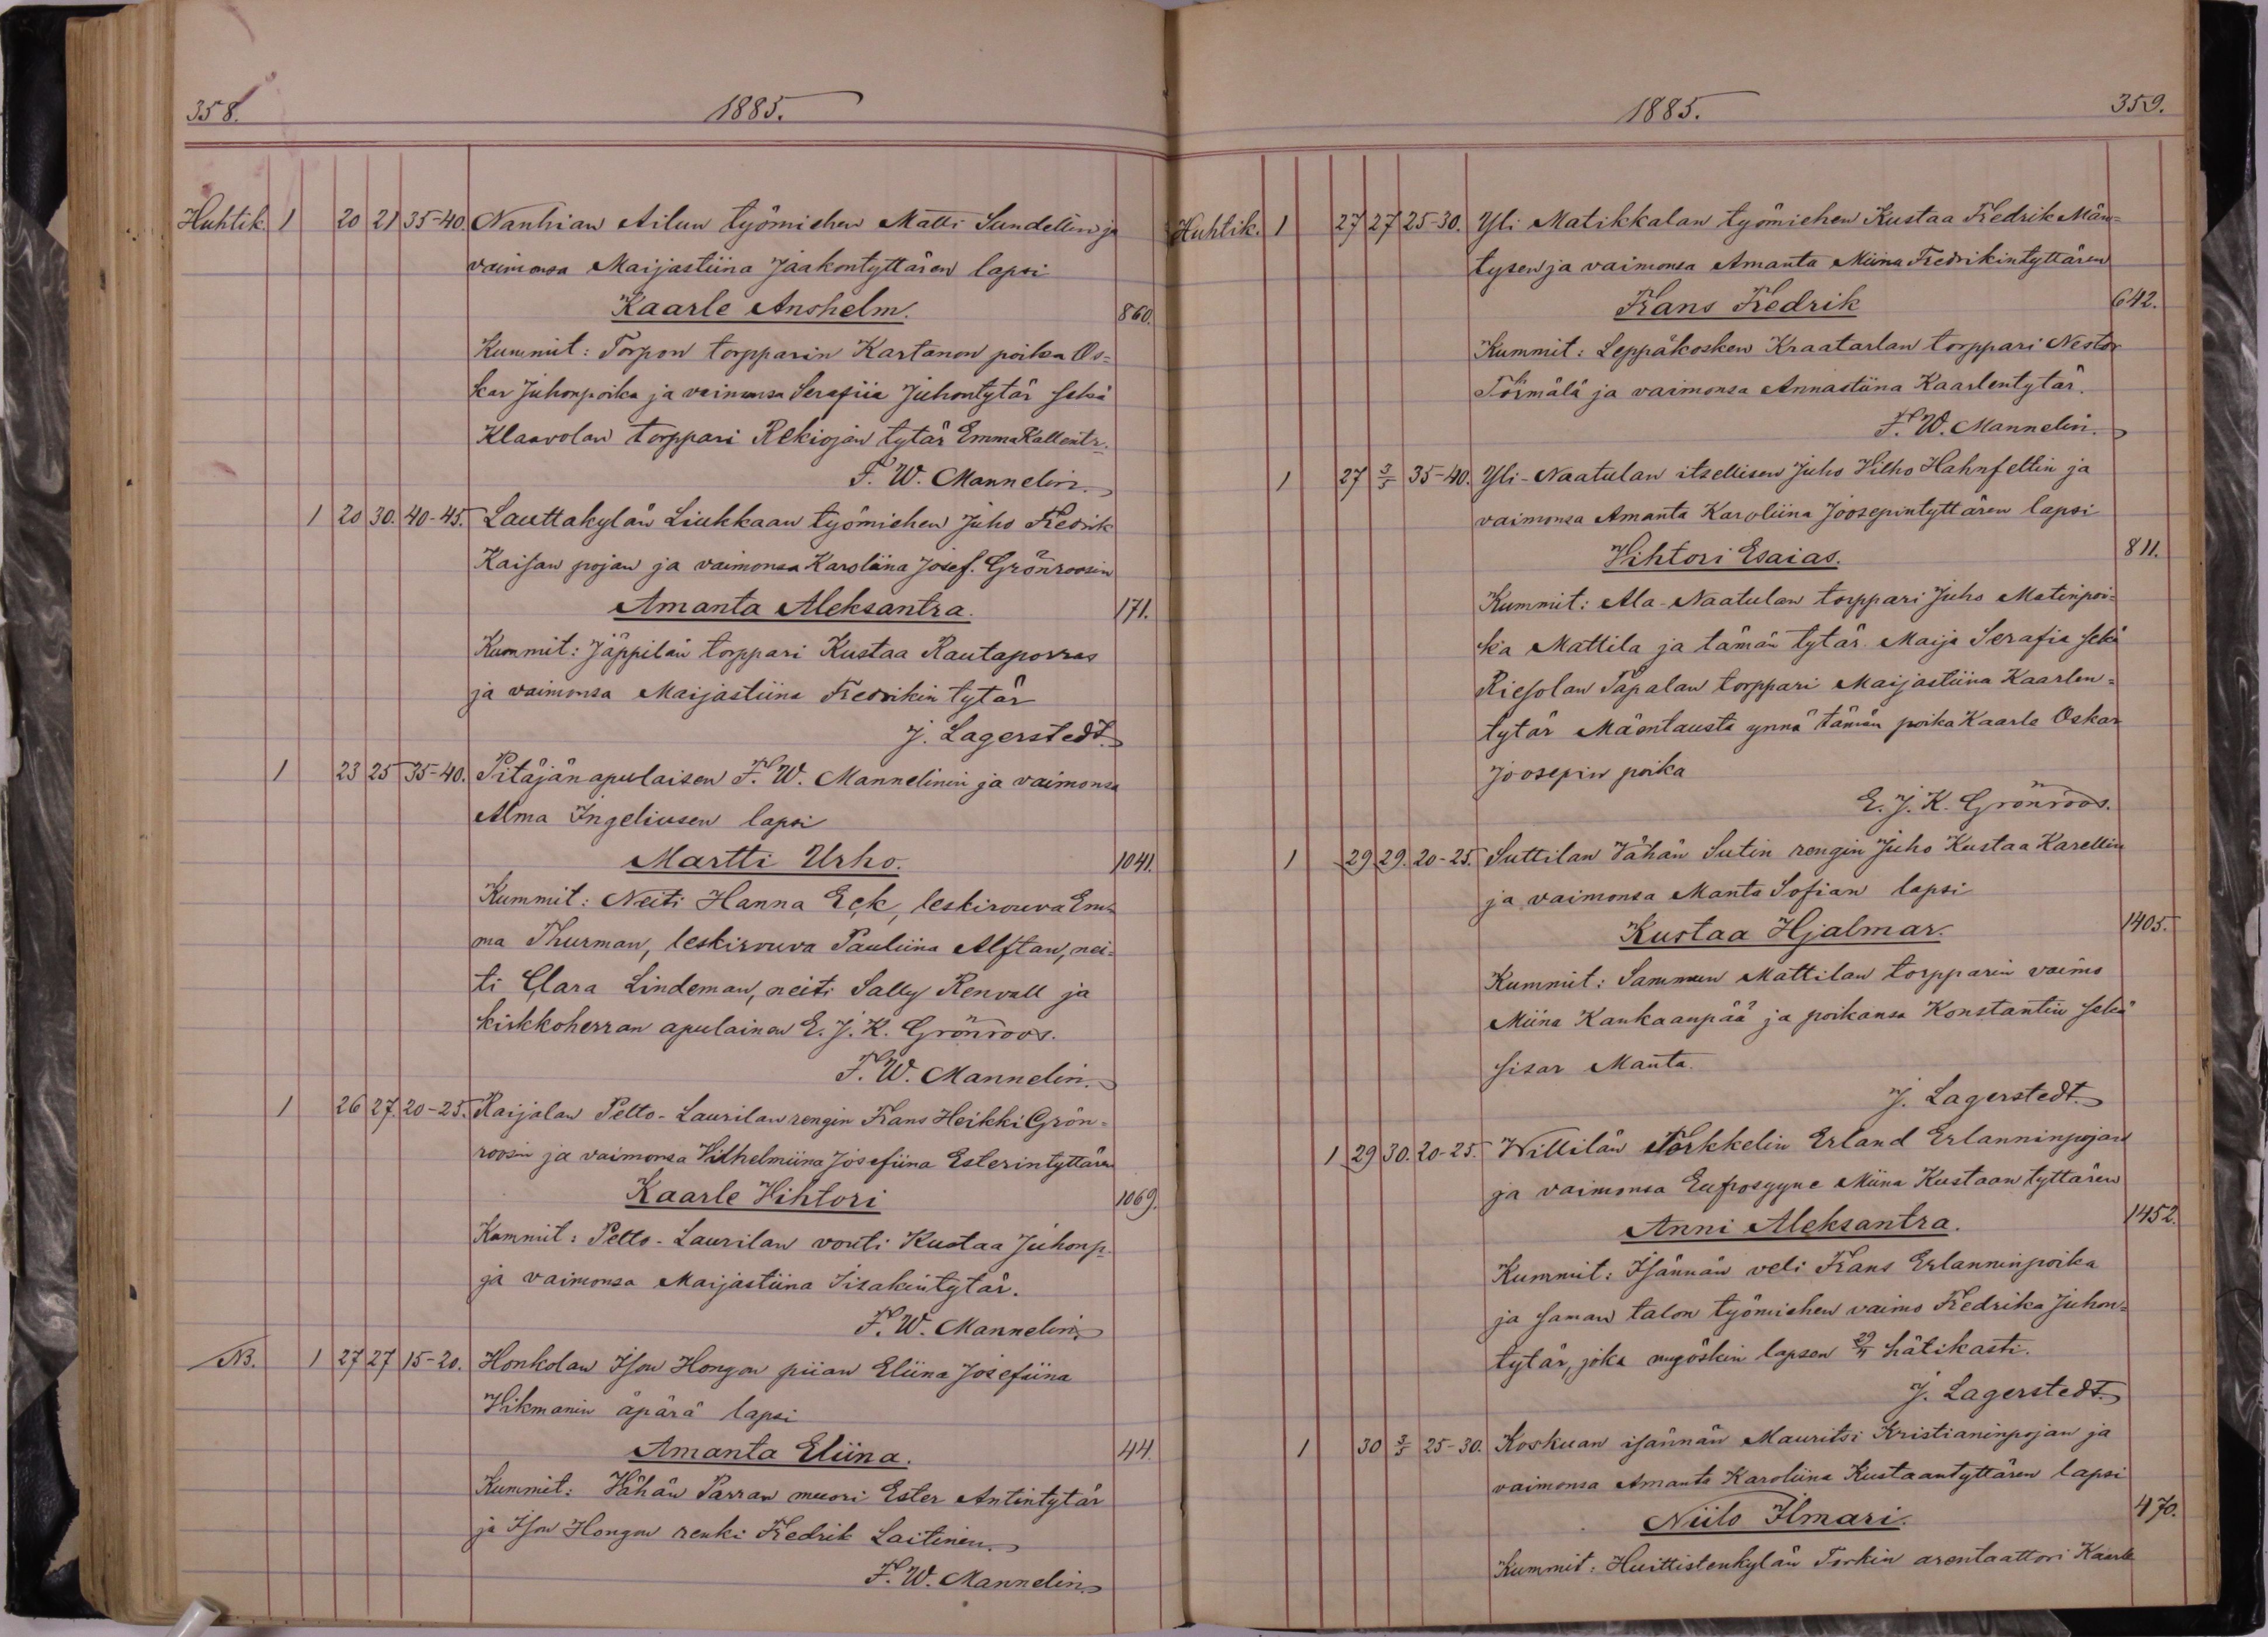 358. 1885.
Huhtik. 1 20 21 35-40. Nanhian Ailun työmiehen Matti Sundellin ja
vaimonsa Maijastiina Jaakontyttären lapsi
Kaarle Anshelm. 860.
Kummit: Torpon torpparin Kartanon poika Os=
kar Juhonpoika ja vaimonsa Serafiia Juhontytär sekä
Klaavolan torppari Rekiojan tytär Emma Kallentr.
F. W. Mannelin.
1 20 30. 40-45. Lauttakylän Liukkaan työmiehen Juho Fredrik
Kaisan pojan ja vaimonsa Karoliina Josef. Grönroosin
Amanta Aleksantra. 171.
Kummit: Jäppilän torppari Kustaa Rautaporras
ja vaimonsa Maijastiina Fredrikin tytär
J. Lagerstedt.
1 23 25 35-40. Pitäjänapulaisen F. W. Mannelinin ja vaimonsa
Alma Ingeliusen lapsi
Martti Urho. 1041.
Kummit: Neiti Hanna Eck, leskirouva Em=
ma Thurman, leskirouva Pauliina Alftan, nei=
ti Clara Lindeman, neiti Sally Renvall ja
kirkkoherran apulainen E. J. K. Grönroos.
F. W. Mannelin.
1 26 27. 20-25. Raijalan Pelto-Laurilan rengin Frans Heikki Grön=
roosin ja vaimonsa Vilhelmiina Josefiina Esterintyttären
Kaarle Vihtori 1069.
Kummit: Pelto-Laurilan vouti Kustaa Juhonp.
ja vaimonsa Maijastiina Iisakintytär.
F. W. Mannelin.
NB. 1 27 27 15-20. Honkolan Ison Hongon piian Eliina Josefiina
Vikmanin äpärä lapsi
Amanta Eliina. 44.
Kummit: Vähän Parran muori Ester Antintytär
ja Ison Hongon renki Fredrik Laitinen.
F. W. Mannelin.
1885. 359.
Huhtik. 1 27 27 25-30. Yli Matikkalan työmiehen Kustaa Fredrik Män=
tysen ja vaimonsa Amanta Miina Fredrikintyttären
Frans Fredrik 642.
Kummit: Leppäkosken Kraatarlan torppari Nestor
Törmälä ja vaimonsa Annastiina Kaarlentytär.
F. W. Mannelin.
1 27 3/5 35-40. Yli-Naatulan itsellisen Juho Vilho Hahnfeltin ja
vaimonsa Amanta Karoliina Joosepintyttären lapsi
Vihtori Esaias. 811.
Kummit: Ala-Naatulan torppari Juho Matinpoi=
ka Mattila ja tämän tytär Maija Serafia sekä
Riesolan Papalan torppari Maijastiina Kaarlen=
tytär Mäentausta ynnä tämän poika Kaarle Oskar
Joosepin poika
E. J. K. Grönroos.
1 29 29. 20-25. Suttilan Vähän Sutin rengin Juho Kustaa Karellin
ja vaimonsa Manta Sofian lapsi
Kustaa Hjalmar. 1405.
Kummit: Sammun Mattilan torpparin vaimo
Miina Kankaanpää ja poikansa Konstantin sekä
sisar Manta.
J. Lagerstedt.
1 29 30. 20-25. Willilän Torkkelin Erland Erlanninpojan
ja vaimonsa Eufrosyyne Miina Kustaantyttären
Anni Aleksantra. 1452.
Kummit: Isännän veli Frans Erlanninpoika
ja saman talon työmiehen vaimo Fredrika Juhon=
tytär, joka myöskin lapsen 29/4 hätikasti.
J. Lagerstedt.
1 30 3/5 25-30. Koskuan isännän Mauritsi Kristianinpojan ja
vaimonsa Amanta Karoliina Kustaantyttären lapsi
Niilo Ilmari. 470.
Kummit: Huittistenkylän Torkin arentaattori Kaarle